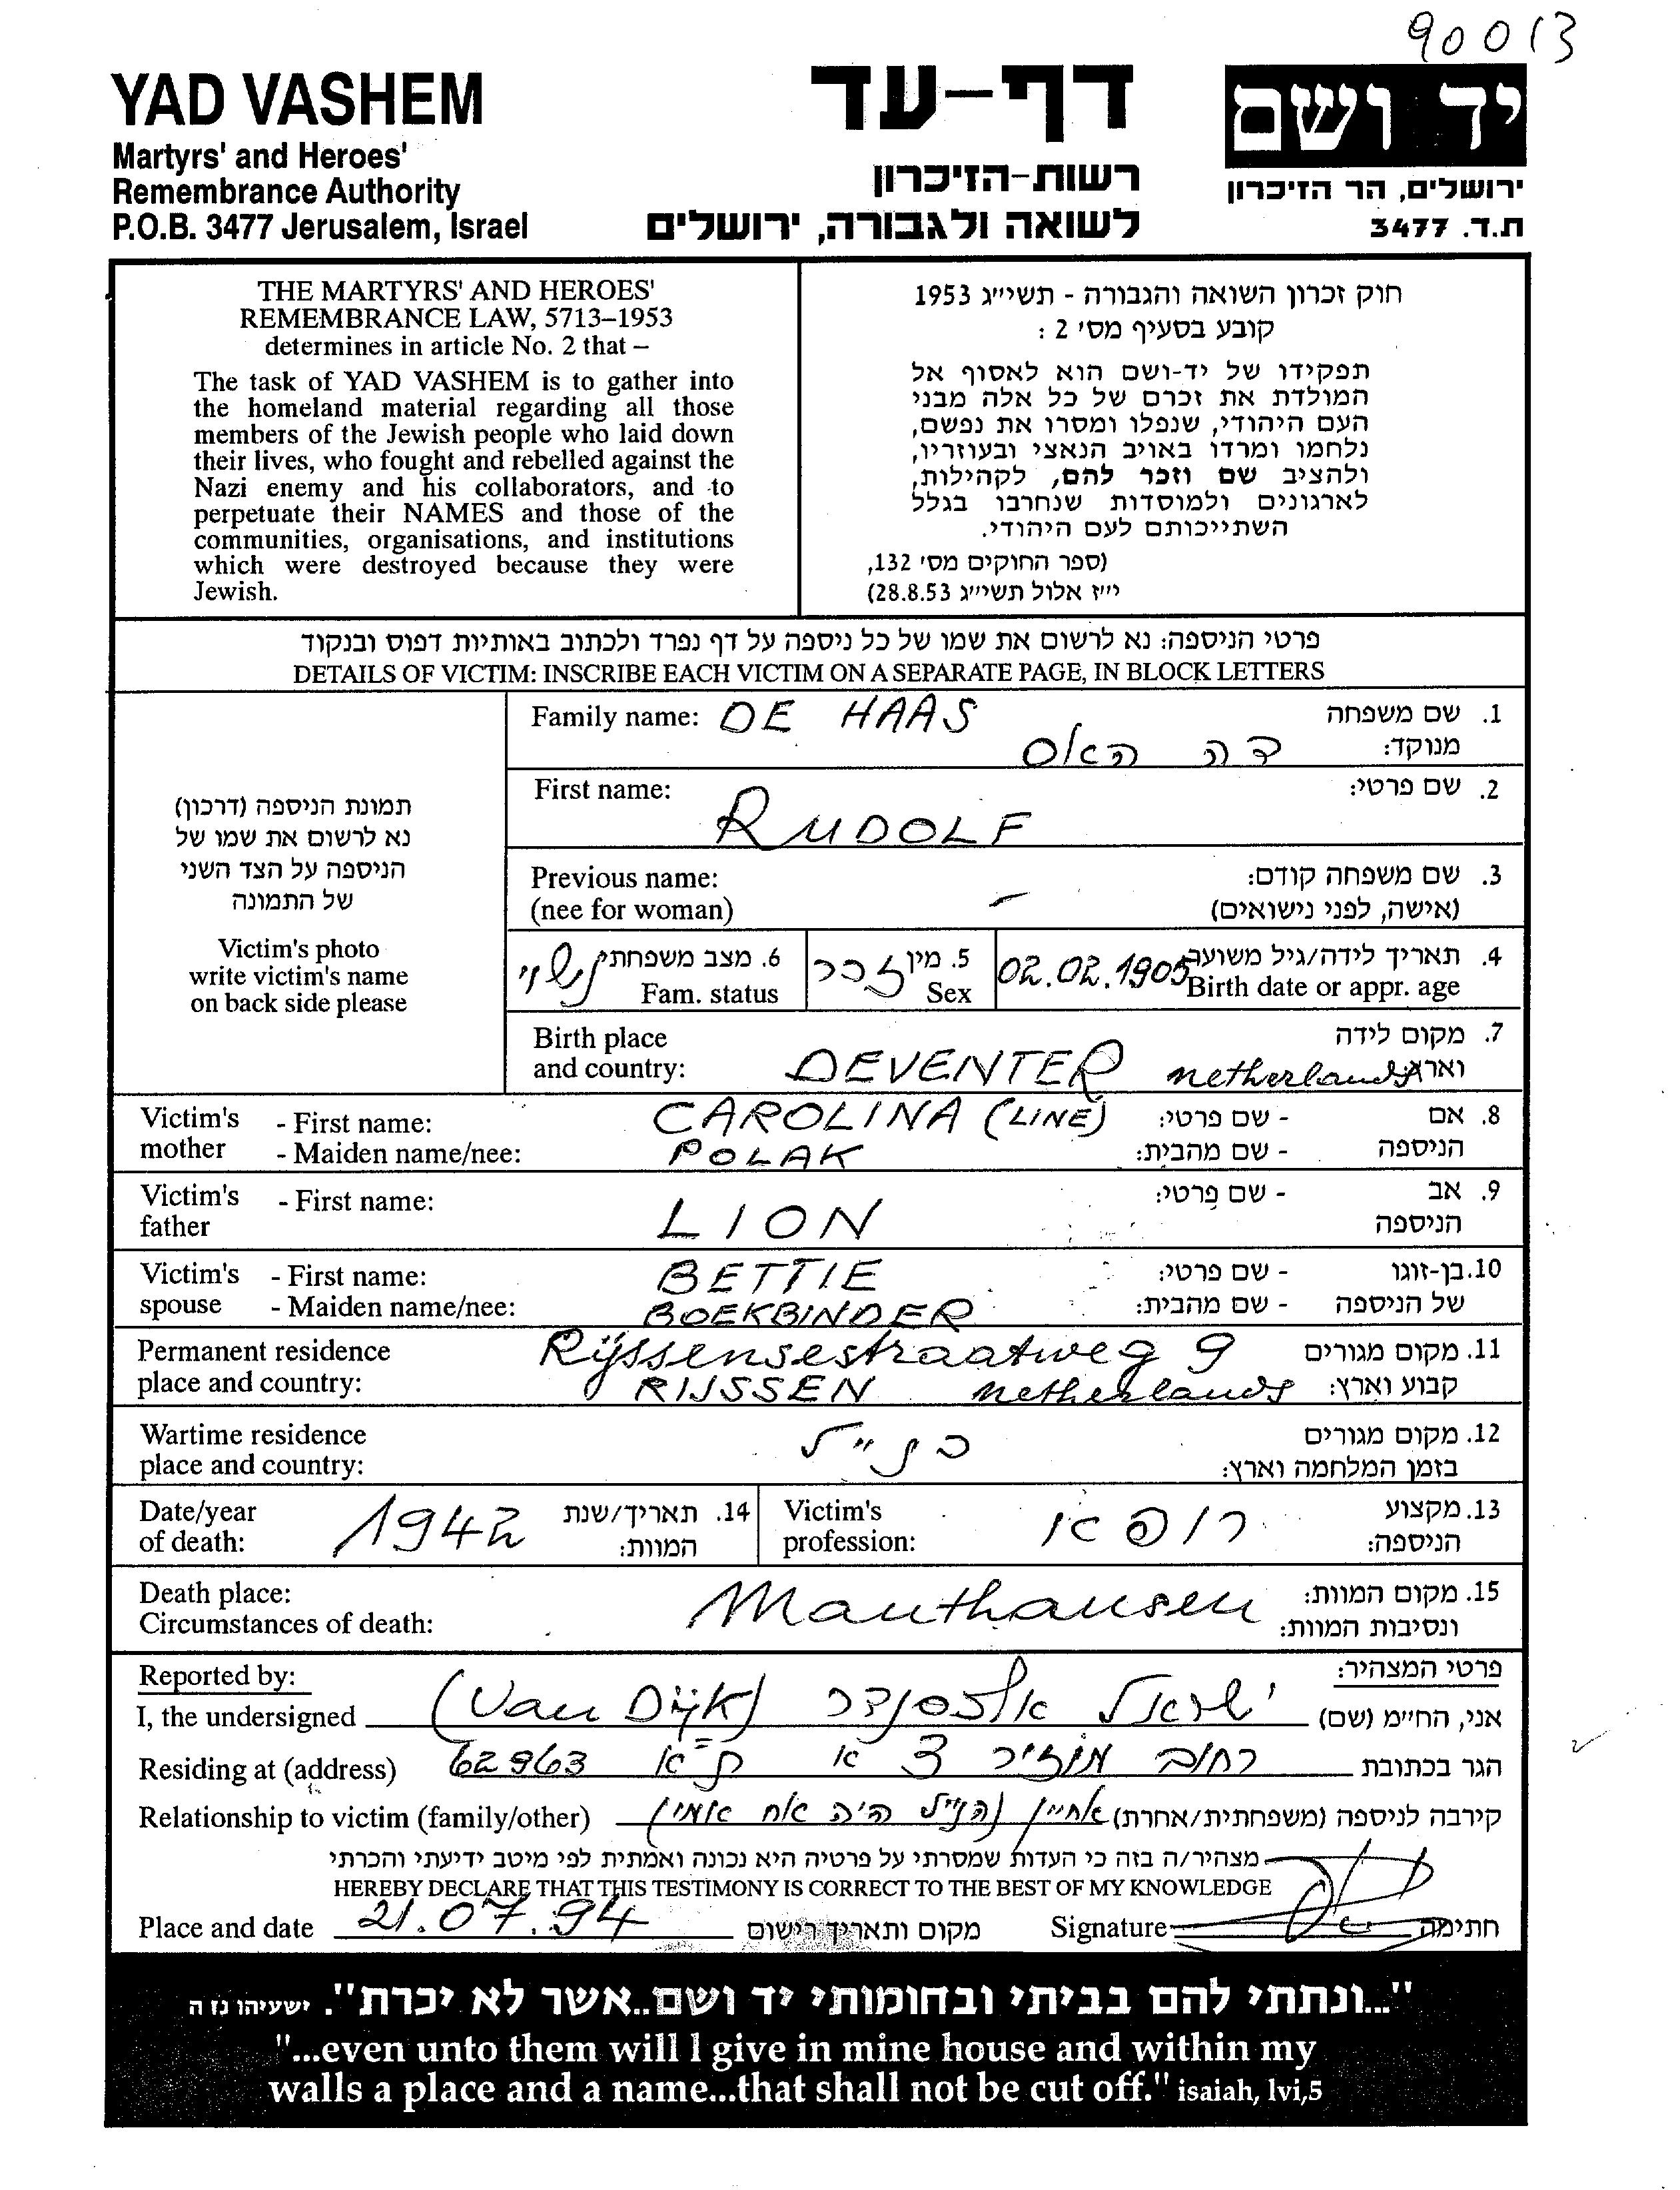 90013
YAD VASHEM
Martyrs' and Heroes'
Remembrance Authority
P.O.B. 3477 Jerusalem, Israel
דף-עד
רשות-הזיכרון
לשואה ולגבורה, ירושלים
יד ושם
ירושלים, הר הזיכרון
ת.ד. 3477
THE MARTYRS' AND HEROES'
REMEMBRANCE LAW, 5713–1953
determines in article No. 2 that –
The task of YAD VASHEM is to gather into
the homeland material regarding all those
members of the Jewish people who laid down
their lives, who fought and rebelled against the
Nazi enemy and his collaborators, and to
perpetuate their NAMES and those of the
communities, organisations, and institutions
which were destroyed because they were
Jewish.
חוק זכרון השואה והגבורה - תשי״ג 1953
קובע בסעיף מס' 2 :
תפקידו של יד-ושם הוא לאסוף אל
המולדת את זכרם של כל אלה מבני
העם היהודי, שנפלו ומסרו את נפשם,
נלחמו ומרדו באויב הנאצי ובעוזריו,
ולהציב שם וזכר להם, לקהילות,
לארגונים ולמוסדות שנחרבו בגלל
השתייכותם לעם היהודי.
(ספר החוקים מס' 132,
י״ז אלול תשי״ג 28.8.53)
פרטי הניספה: נא לרשום את שמו של כל ניספה על דף נפרד ולכתוב באותיות דפוס ובנקוד
DETAILS OF VICTIM: INSCRIBE EACH VICTIM ON A SEPARATE PAGE, IN BLOCK LETTERS
תמונת הניספה (דרכון)
נא לרשום את שמו של
הניספה על הצד השני
של התמונה
Victim's photo
write victim's name
on back side please
Family name: DE HAAS 1. שם משפחה
דה האס מנוקד:
First name: RUDOLF 2. שם פרטי:
Previous name: – 3. שם משפחה קודם:
(nee for woman) (אישה, לפני נישואים)
6. מצב משפחתי נשוי 5. מין זכר 4. תאריך לידה/גיל משוער
Fam. status Sex 02.02.1905 Birth date or appr. age
Birth place 7. מקום לידה
and country: DEVENTER netherlands וארץ
Victim's - First name: CAROLINA (LINE) - שם פרטי: 8. אם
mother - Maiden name/nee: POLAK - שם מהבית: הניספה
Victim's - First name: LION - שם פרטי: 9. אב
father הניספה
Victim's - First name: BETTIE - שם פרטי: 10. בן-זוגו
spouse - Maiden name/nee: BOEKBINDER - שם מהבית: של הניספה
Permanent residence Rijssensestraatweg 9 11. מקום מגורים
place and country: RIJSSEN netherlands קבוע וארץ:
Wartime residence כנ״ל 12. מקום מגורים
place and country: בזמן המלחמה וארץ:
Date/year 1942 14. תאריך/שנת
of death: המוות:
Victim's רופא 13. מקצוע
profession: הניספה:
Death place: Mauthausen 15. מקום המוות:
Circumstances of death: ונסיבות המוות:
Reported by: פרטי המצהיר:
I, the undersigned (Van Dijk) ישראל אלכסנדר אני, הח״מ (שם)
Residing at (address) רחוב מוזיר 3 א ת״א 62963 הגר בכתובת
Relationship to victim (family/other) אחיין (הנ״ל היה אח אמי) קירבה לניספה (משפחתית/אחרת)
מצהיר/ה בזה כי העדות שמסרתי על פרטיה היא נכונה ואמתית לפי מיטב ידיעתי והכרתי
HEREBY DECLARE THAT THIS TESTIMONY IS CORRECT TO THE BEST OF MY KNOWLEDGE
Place and date 21.07.94 מקום ותאריך רישום Signature חתימה
"...ונתתי להם בביתי ובחומותי יד ושם..אשר לא יכרת". ישעיהו נו ה
"...even unto them will I give in mine house and within my
walls a place and a name...that shall not be cut off." isaiah, lvi,5